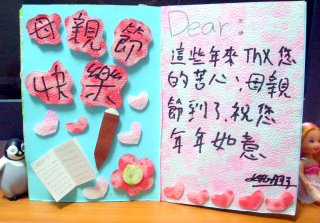 母親節
快樂
Dear:
這些年來Thx您
的苦心;母親
節到了,祝您
年年如意